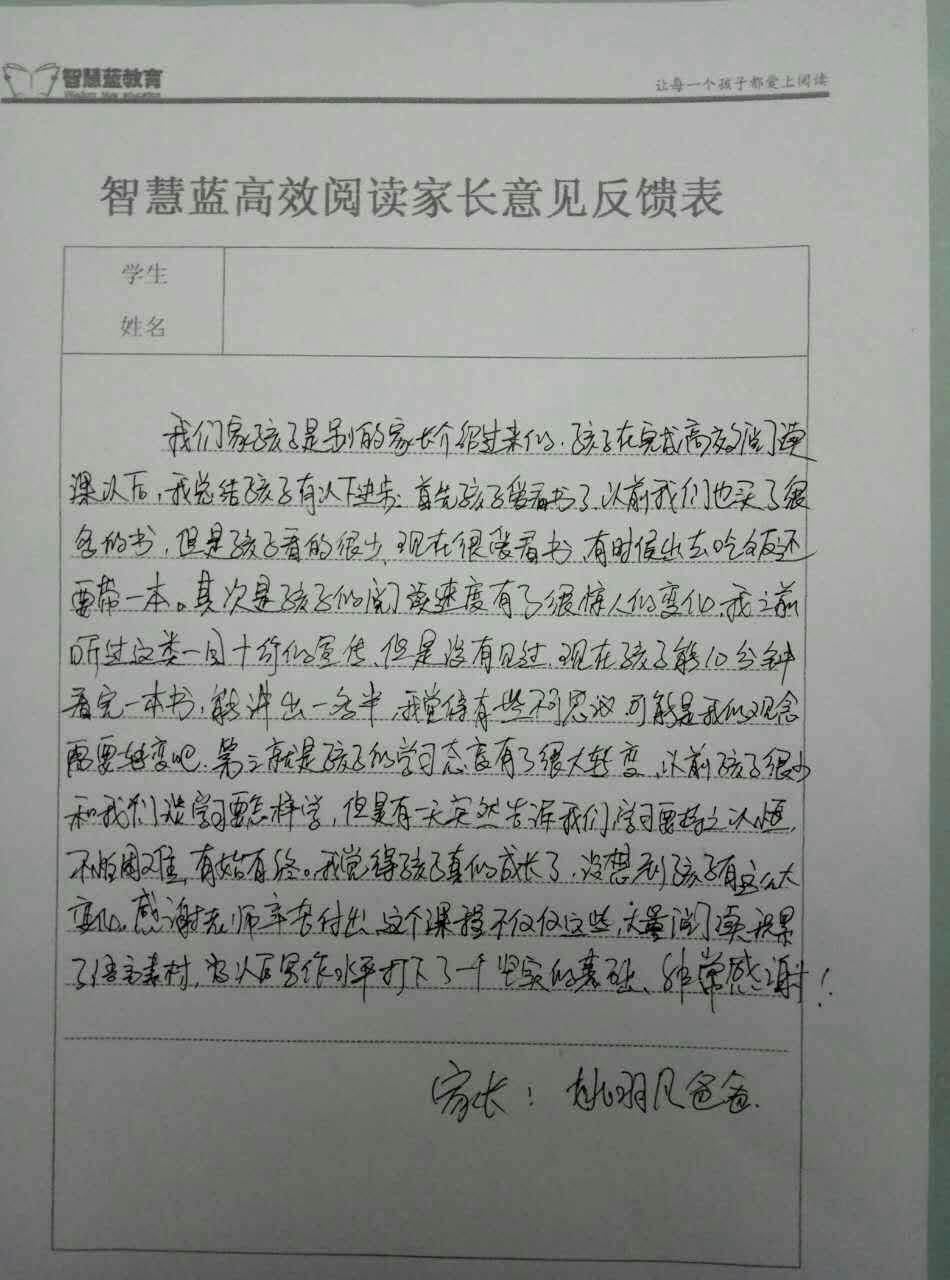 智慧蓝教育
Wisdom blue education
让每一个孩子都爱上阅读
智慧蓝高效阅读家长意见反馈表
学生
姓名
我们家孩子是别的家长介绍过来的.孩子在完成高效阅读
课以后,我总结孩子有以下进步:首先孩子爱看书了.以前我们也买了很
多的书,但是孩子看的很少.现在很爱看书,有时候出去吃饭还
要带一本。其次是孩子的阅读速度有了很惊人的变化.我之前
听过这类一目十行的宣传、但是没有见过.现在孩子能10分钟
看完一本书,能讲出一多半.我觉得有些不可思议可能是我们观念
需要转变吧.第三就是孩子的学习态度有了很大转变、以前孩子很少
和我们谈学习要怎样学,但是有一天突然告诉我们学习要持之以恒,
不怕困难,有始有终。我觉得孩子真的成长了.没想到孩子有这么大
变化。感谢老师辛苦付出.这个课程不仅仅这些,大量阅读积累
了语言素材,为以后写作水平打下了一个坚实的基础、非常感谢!
家长:翊凡爸爸.